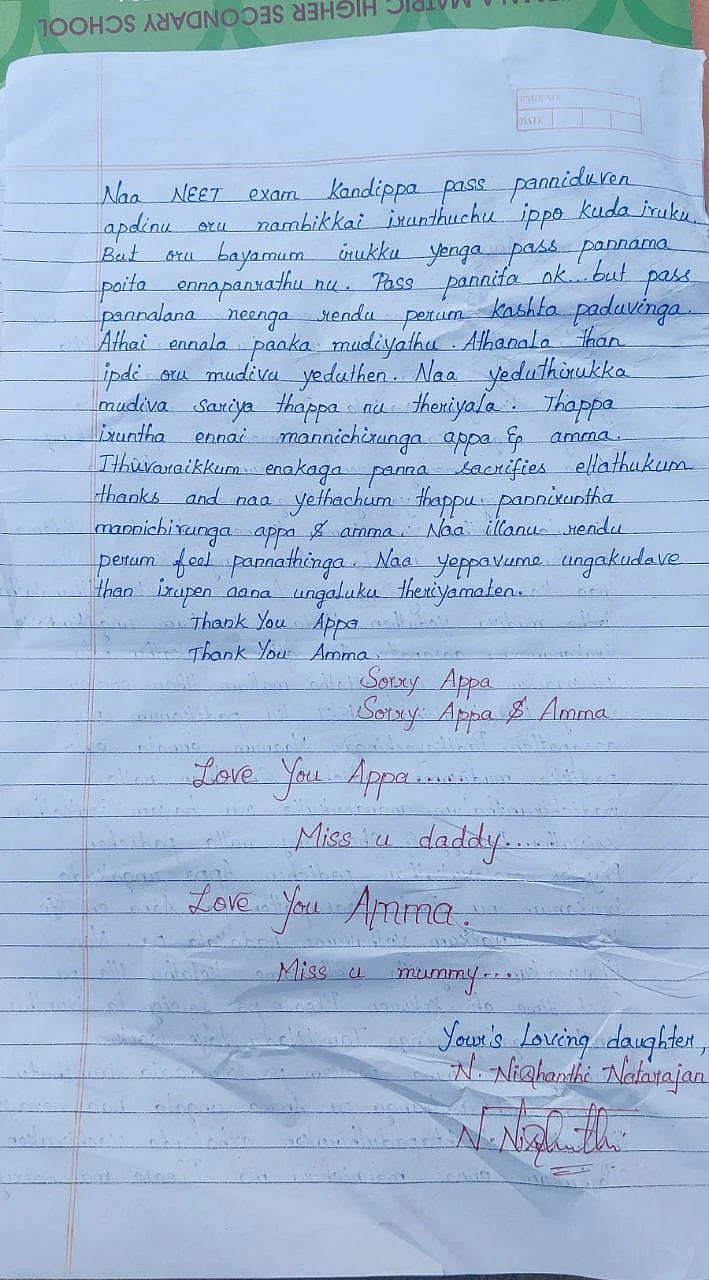 MATRIC HIGHER SECONDARY SCHOOL
PAGE NO.
DATE
Naa NEET exam kandippa pass panniduven
apdinu oru nambikkai irunthuchu ippo kuda iruku.
But oru bayamum irukku yenga pass pannama
poita ennapanrathu nu. Pass pannita ok... but pass
pannalana neenga rendu perum kashta paduvinga.
Athai ennala paaka mudiyathu. Athanala than
ipdi oru mudivu yeduthen. Naa yeduthirukka
mudiva sariya thappa nu theriyala. Thappa
iruntha ennai mannichirunga appa & amma.
Ithuvaraikkum enakaga panna sacrifies ellathukum
thanks and naa yethachum thappu panniruntha
mannichirunga appa & amma. Naa illanu rendu
perum feel pannathinga. Naa yeppavume ungakudave
than irupen aana ungaluku theriyamaten.
Thank You Appa
Thank You Amma.
Sorry Appa
Sorry Appa & Amma
Love You Appa.....
Miss u daddy....
Love You Amma.
Miss u mummy...
Your's Loving daughter,
N. Nishanthi Natarajan
N. Nishanthi